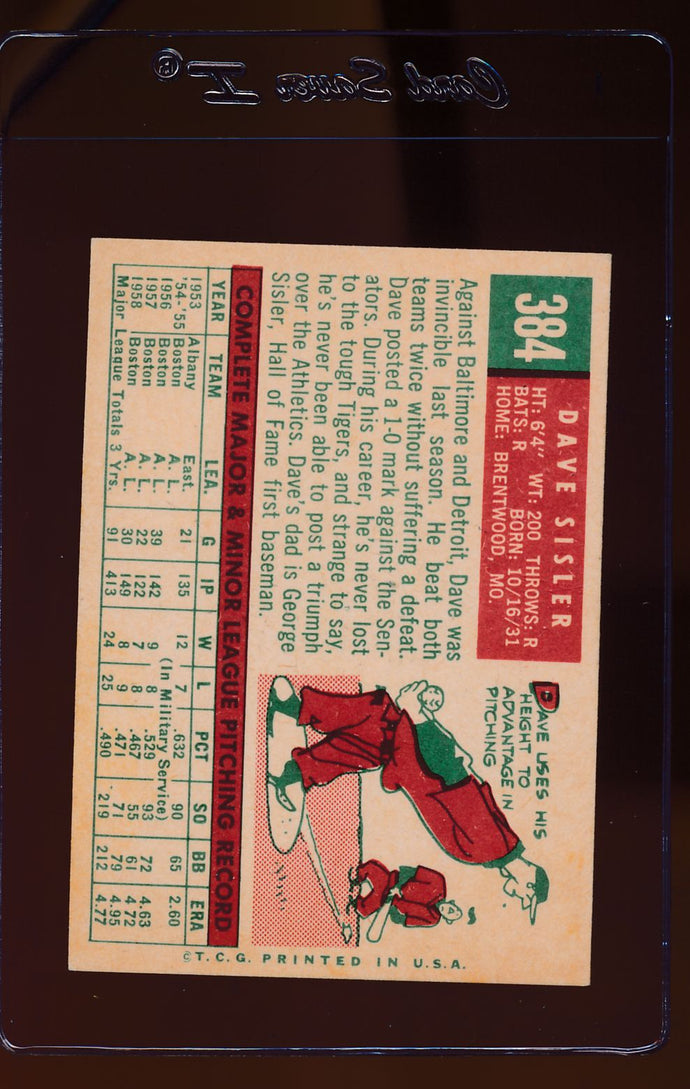 Card Saver I ®
384
DAVE SISLER
HT: 6'4" WT: 200 THROWS: R
BATS: R BORN: 10/16/31
HOME: BRENTWOOD, MO.
Against Baltimore and Detroit, Dave was
invincible last season. He beat both
teams twice without suffering a defeat.
Dave posted a 1-0 mark against the Sen-
ators. During his career, he's never lost
to the tough Tigers, and strange to say,
he's never been able to post a triumph
over the Athletics. Dave's dad is George
Sisler, Hall of Fame first baseman.
DAVE USES HIS
HEIGHT TO
ADVANTAGE IN
PITCHING
COMPLETE MAJOR & MINOR LEAGUE PITCHING RECORD
YEAR TEAM LEA. G IP W L PCT SO BB ERA
1953 Albany East. 21 135 12 7 .632 90 65 2.60
'54-'55 Boston A. L. (In Military Service)
1956 Boston A. L. 39 142 9 8 .529 93 72 4.63
1957 Boston A. L. 22 122 7 8 .467 55 61 4.72
1958 Boston A. L. 30 149 8 9 .471 71 79 4.95
Major League Totals 3 Yrs. 91 413 24 25 .490 219 212 4.77
© T. C. G. PRINTED IN U.S.A.